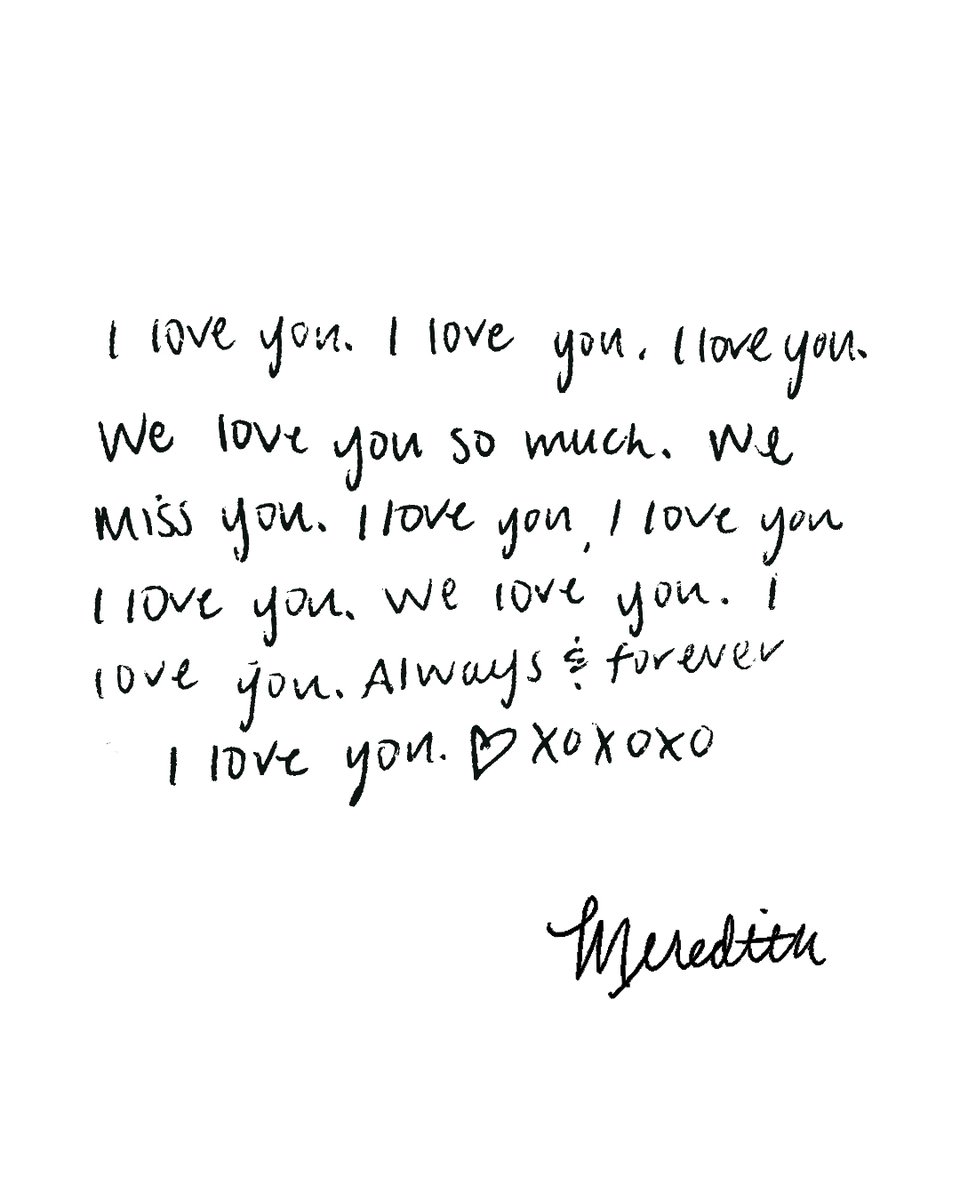 I love you. I love you. I love you.
We love you so much. We
miss you. I love you, I love you
I love you. We love you. I
love you. Always & forever
I love you. ♡ xoxoxo
Meredith